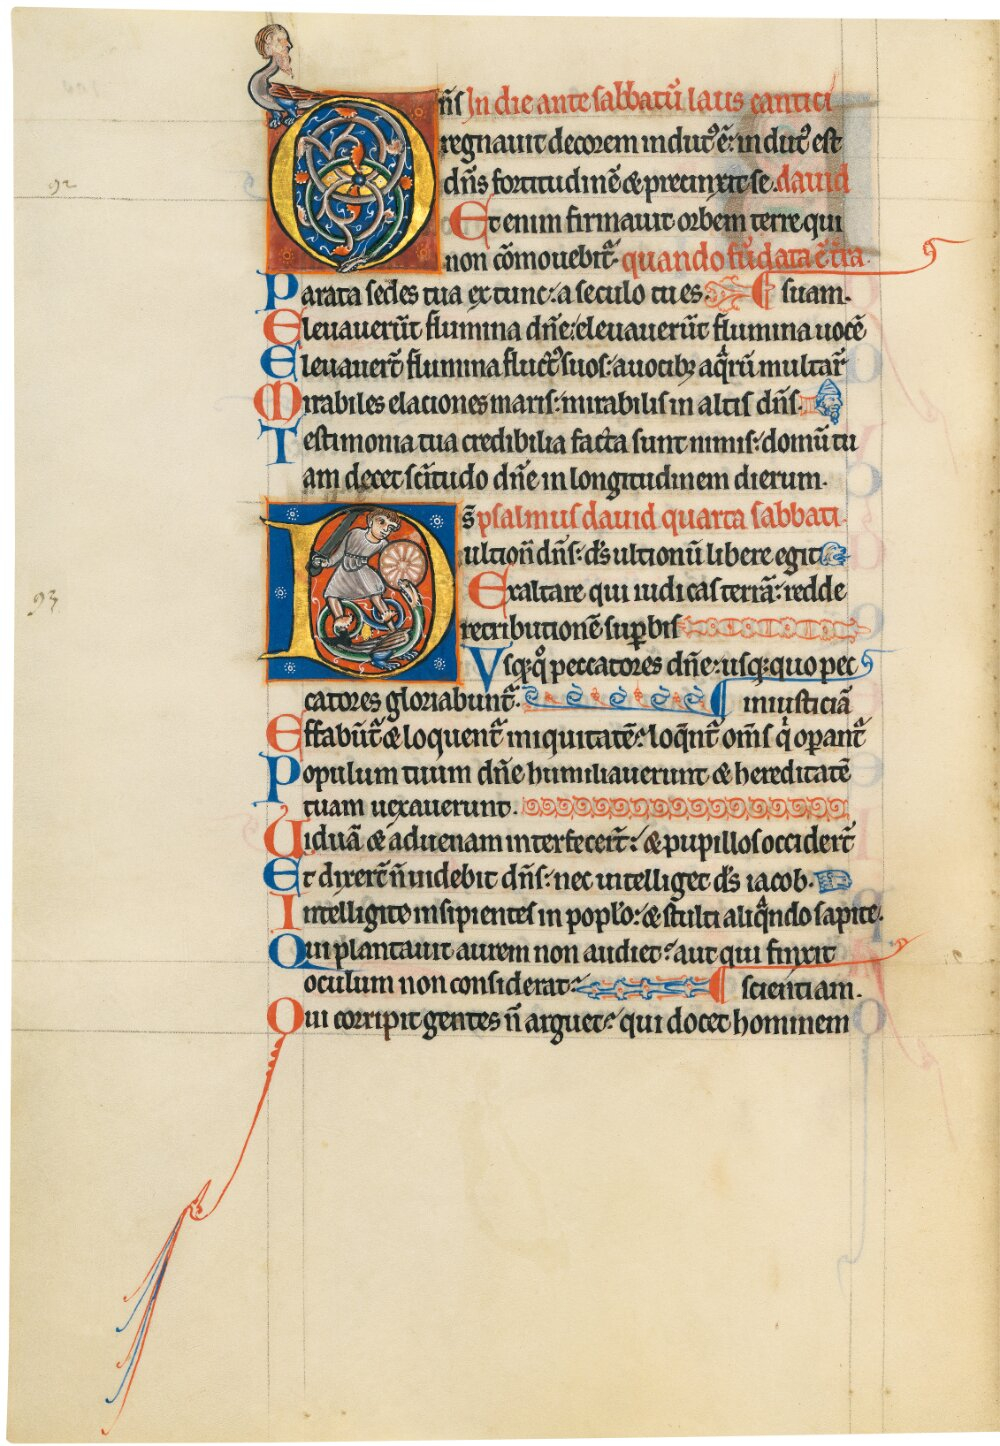 Dn̄s In die ante sabbatū laus cantici
regnauit decorem indut᷒ ē: indut᷒ est
dn̄s fortitudinē & precinxit se. dauid
Et enim firmauit orbem terre qui
non cōmouebit᷑ quando fūdata ē t̄ra
Parata sedes tua ex tunc: a seculo tu es. suam.
Eleuauerūt flumina dn̄e: eleuauerūt flumina uocē
Eleuauer̄t flumina fluct᷒ suos: a uocib; aq̄rū multar̄
Mirabiles elaciones maris: mirabilis in altis dn̄s.
Testimonia tua credibilia facta sunt nimis: domū tu
am decet sc̄itudo dn̄e in longitudinem dierum.
92
Ds̄ psalmus dauid quarta sabbati
ultionū dn̄s: ds̄ ultionū libere egit
Exaltare qui iudicas terrā: redde
retributionē suꝑbis
93
Vsq; q̊ peccatores dn̄e: usq; quo pec
catores gloriabunt᷑. iniusticiā
Effabūt᷑ & loquent᷑ iniquitatē: loq̄nt᷑ om̄s q̇ oꝑant᷑
Populum tuum dn̄e humiliauerunt & hereditatē
tuam uexauerunt.
Uiduā & aduenam interfecer̄t: & pupillos occider̄t
Et dixer̄t n̄ uidebit dn̄s: nec intelliget ds̄ iacob.
Intelligite insipientes in pop̄lo: & stulti aliq̄ndo sapite.
Qui plantauit aurem non audiet: aut qui finxit
oculum non considerat: scientiam.
Qui corripit gentes n̄ arguet: qui docet hominem